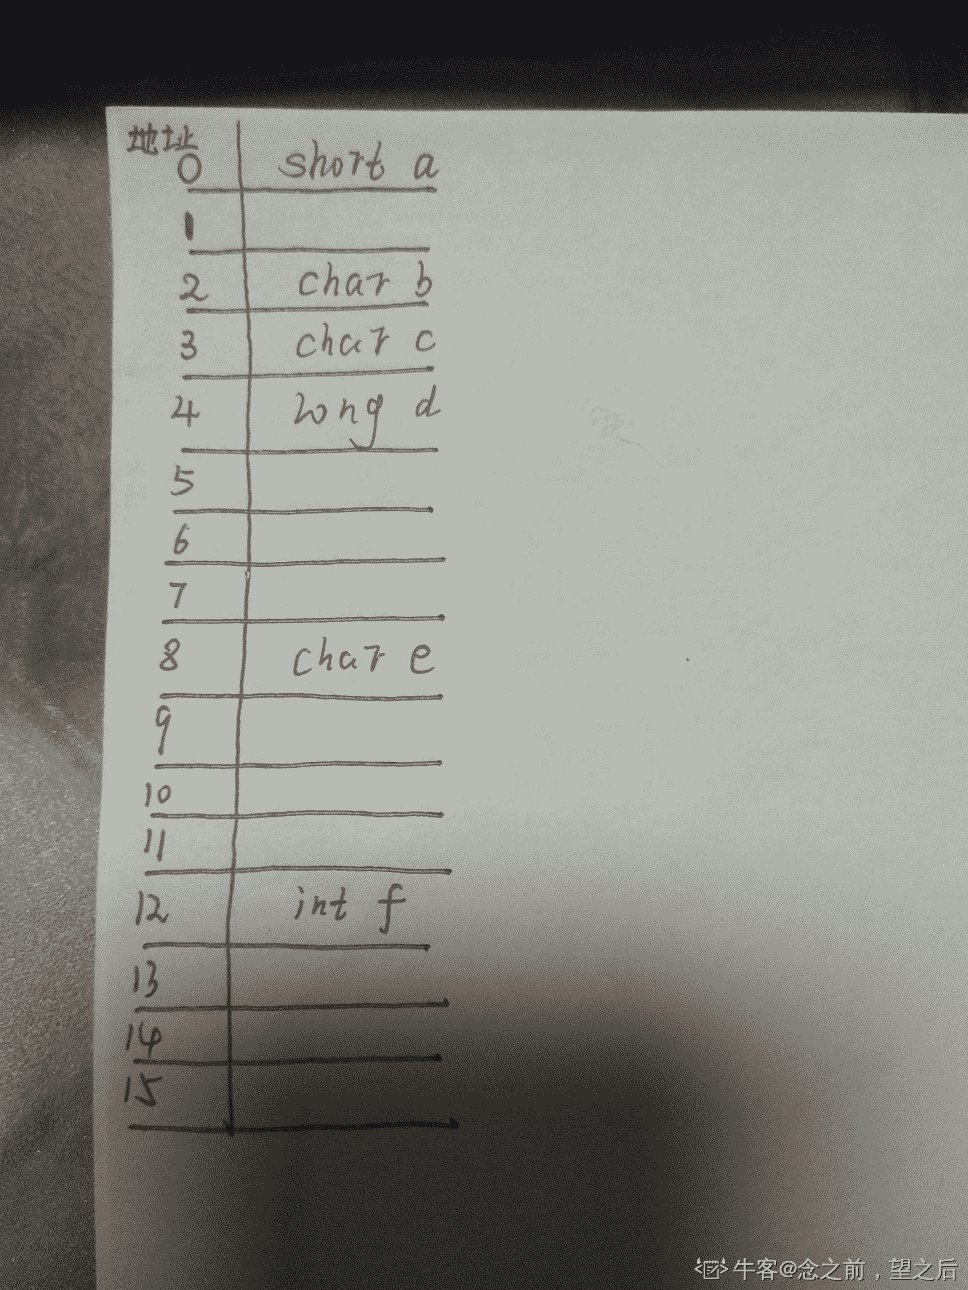 地址
0 short a
1
2 char b
3 char c
4 long d
5
6
7
8 char e
9
10
11
12 int f
13
14
15
牛客@念之前，望之后